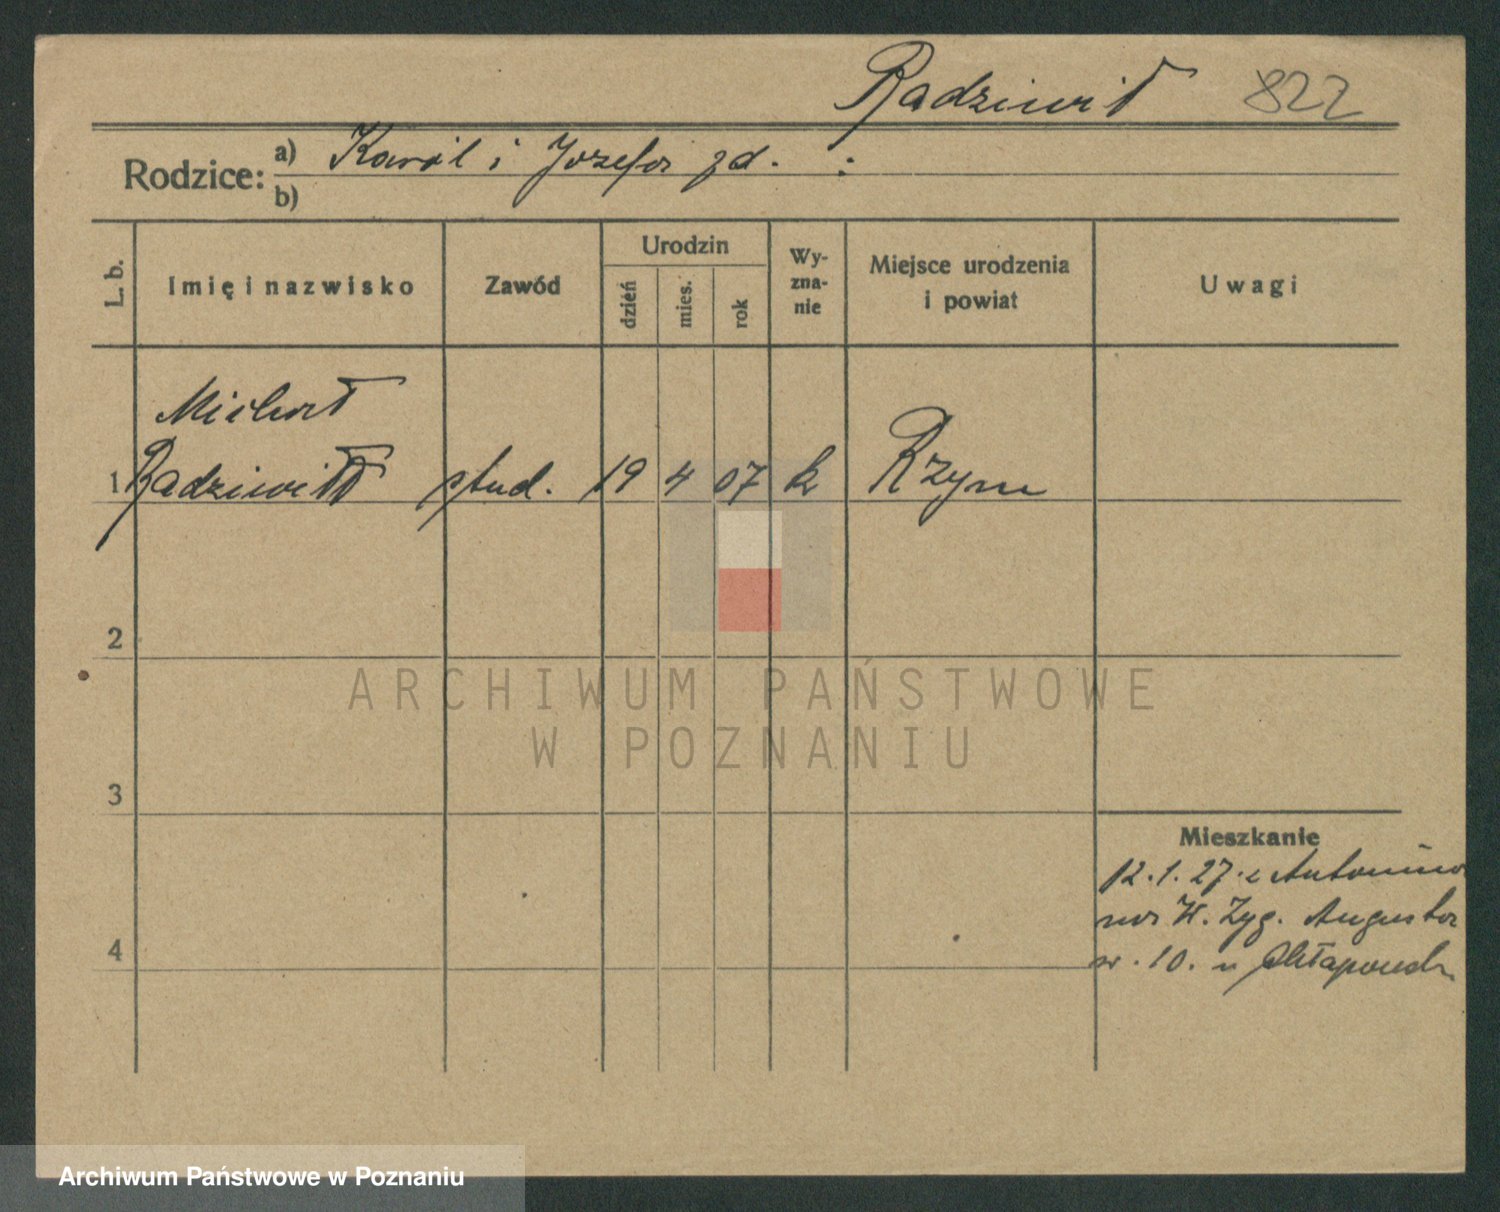 Radziwił 822
Rodzice: a) Karól i Józefa zd. :
b)
L. b.
Imię i nazwisko
Zawód
Urodzin
dzień
mies.
rok
Wy-
zna-
nie
Miejsce urodzenia
i powiat
Uwagi
Michał
1 Radziwiłł stud. 19 4 07 k Rzym
2
ARCHIWUM PAŃSTWOWE
W POZNANIU
3
Mieszkanie
12.1.27. z Antonina
na W. Zyg. Augusta
nr. 10. u
4
Archiwum Państwowe w Poznaniu